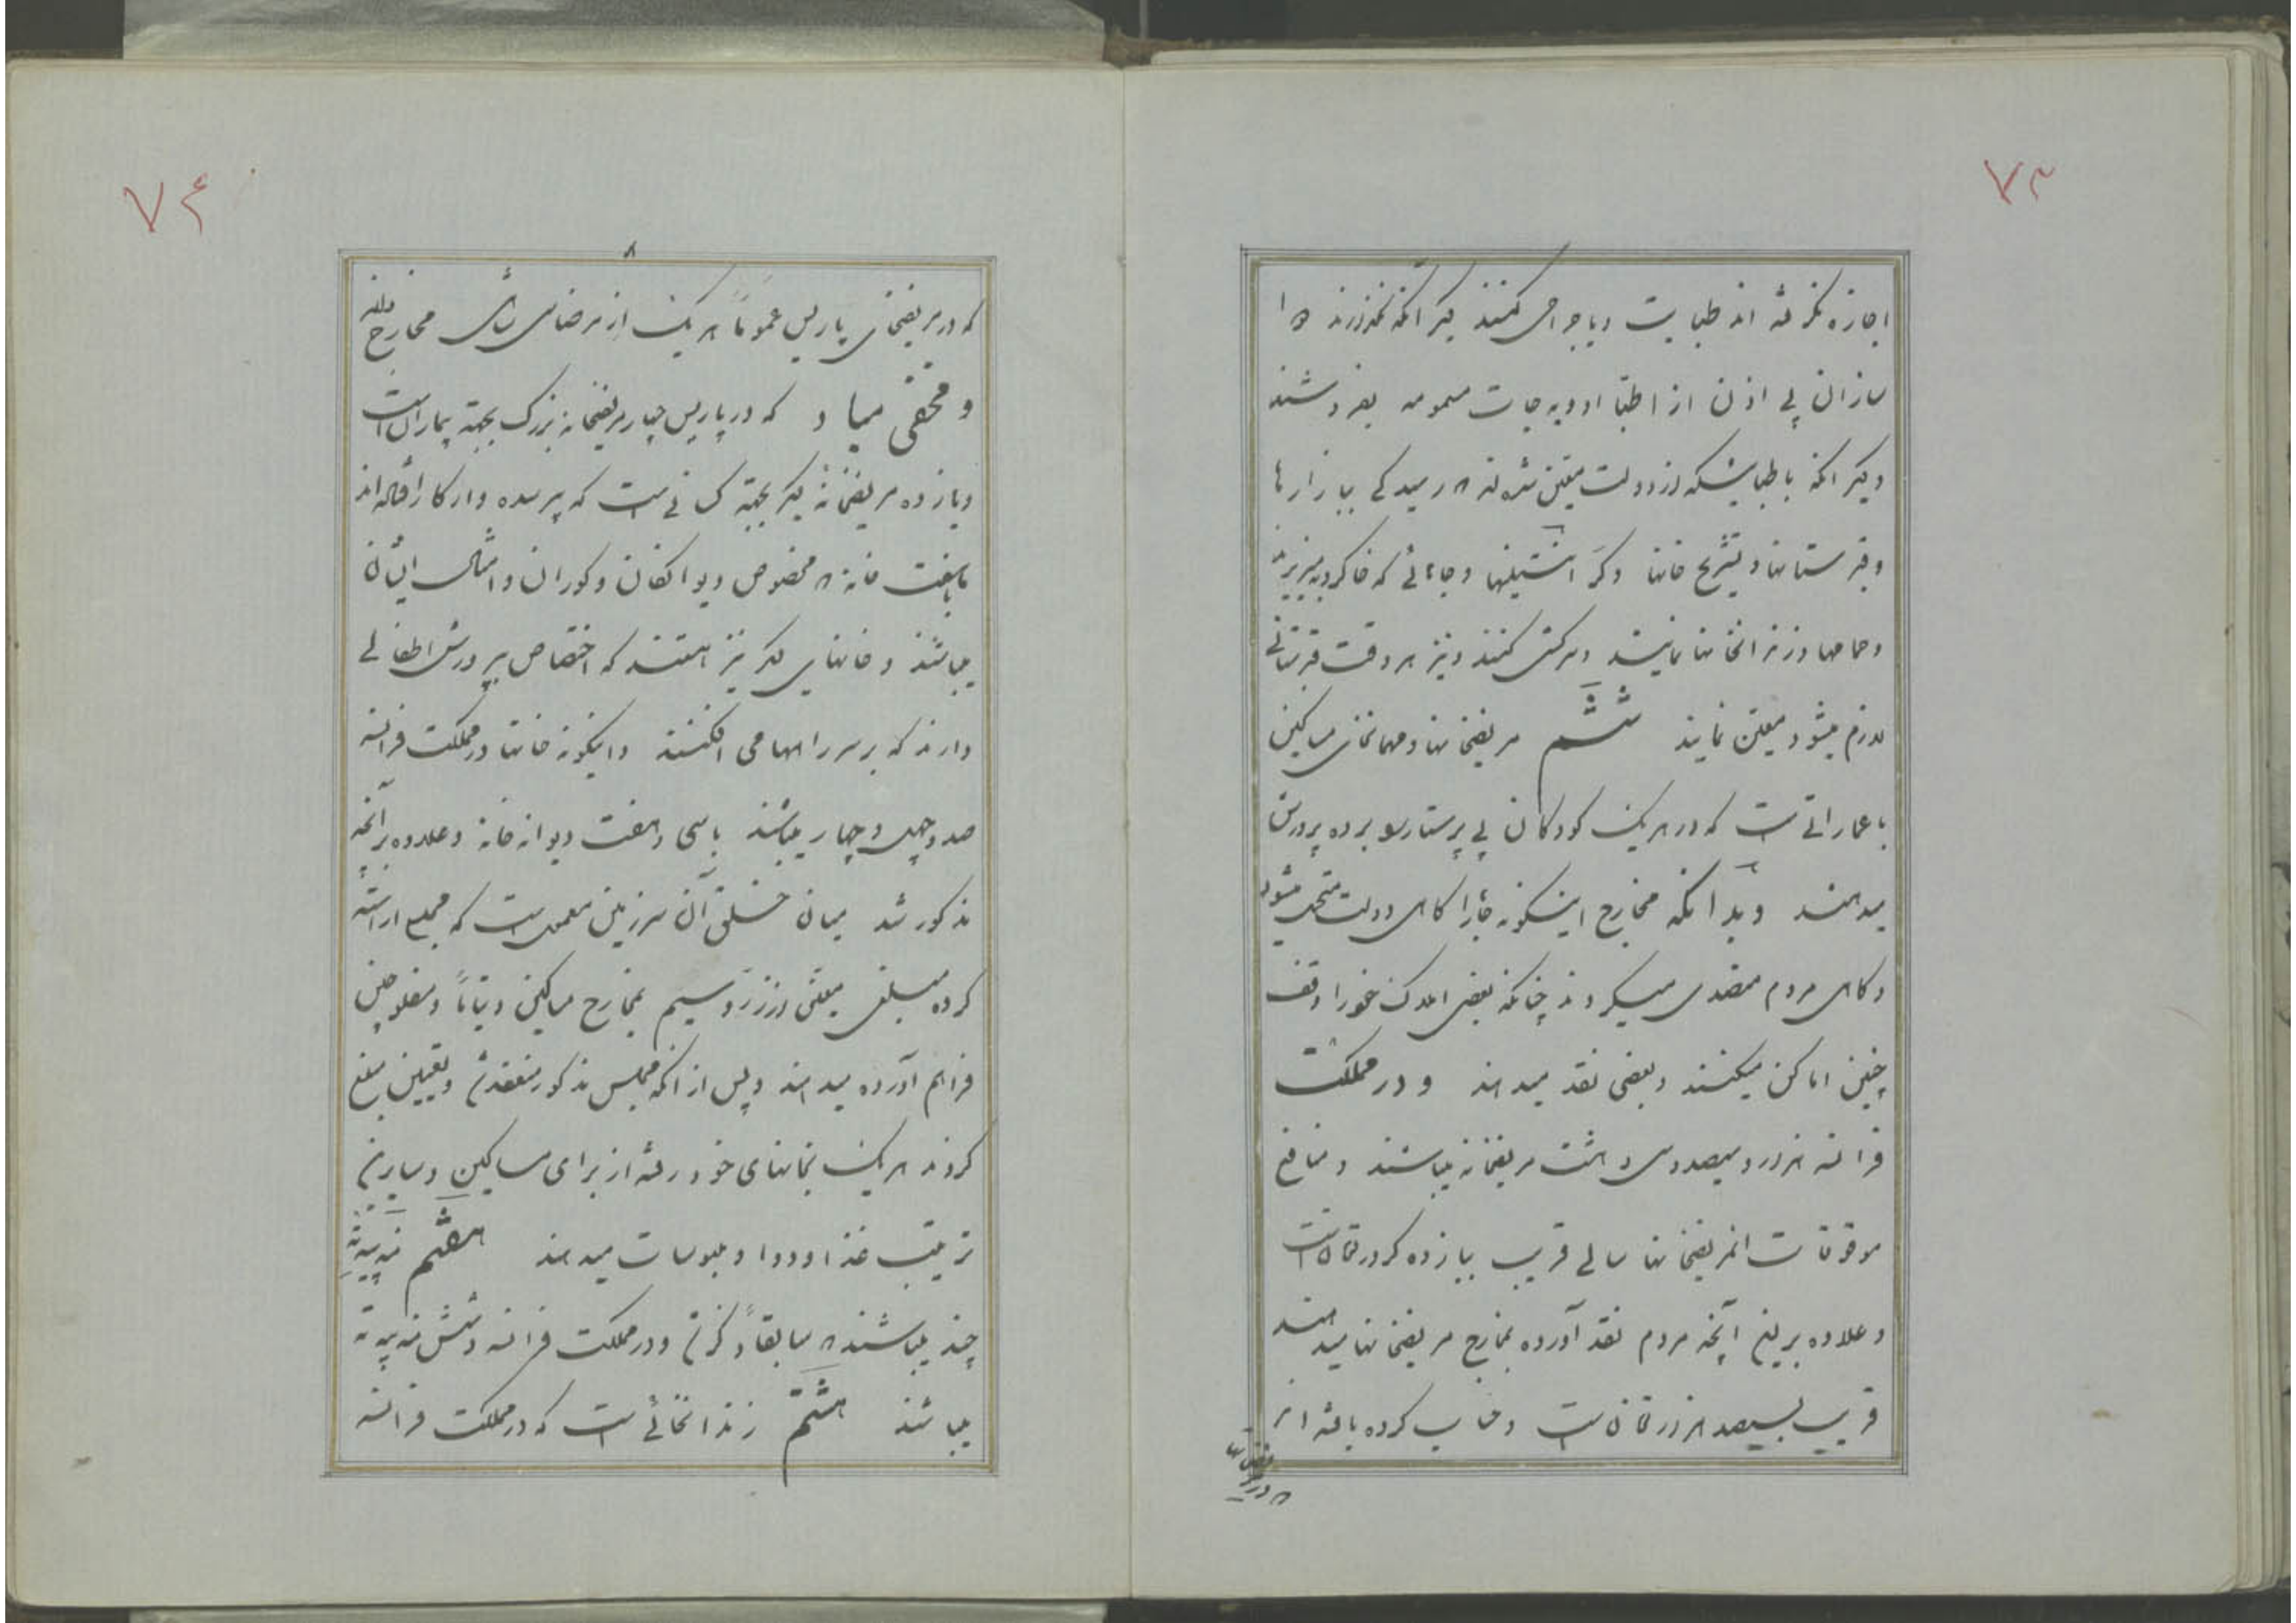 ۷۳
اجازه نگرفته اند طبابت و یا جراحی کنند دیگر آنکه نگذارند دوا
سازان بی اذن از اطبا ادویه جات مسمومه بفروشند
دیگر آنکه با طبابیکه از دولت معین شده اند رسیدگی ببازارها
و قبرستانها و تشریح خانها و کر استیلها و جاهائی که خاکروبه میریزند
و حمامها و زندانخانها نمایند و سرکشی کنند و نیز هر وقت قبرستانی
لازم میشود معین نمایند ششم مریضخانها و مهمانخانهای مساکین
با عماراتی است که در هر یک کودکان بی پرستار را برده پرورش
میدهند و بدانکه مخارج اینگونه جاها را گاهی دولت متحمل میشود
و گاهی مردم متصدی میگردند چنانکه بعضی املاک خود را وقف
چنین اماکن میکنند و بعضی نقد میدهند و در مملکت
فرانسه هزار و سیصد و سی و هشت مریضخانه میباشند و منافع
موقوفات این مریضخانها سالی قریب بیازده کرور تومان است
و علاوه برین آنچه مردم نقد آورده بمخارج مریضخانها میدهند
قریب بسیصد هزار تومان است و حساب کرده یافته اند
۷۴
که در مریضخانهای پاریس عموماً هر یک از مرضا سالی مخارج دارند
و مخفی مباد که در پاریس چهار مریضخانه بزرگ بجهة بیماران است
و یازده مریضخانه دیگر بجهة کسانی است که پیر شده و از کار افتاده اند
با هفت خانه مخصوص دیوانگان و کوران و امثال ایشان
میباشند و خانهای دیگر نیز هستند که اختصاص بپرورش اطفالی
دارند که بر سر راهها می افکنند و اینگونه خانها در مملکت فرانسه
صد و چهل و چهار میباشند با سی و هفت دیوانه خانه و علاوه برآنچه
مذکور شد میان خلق آن سرزمین معمول است که مجمع آراسته
کرده مبلغی معین از زر و سیم بمخارج مساکین و یتاما و مفلوجین
فراهم آورده میدهند و پس از آنکه مجلس مذکور منعقد شد و تعیین مبلغ
کردند هر یک بخانهای خود رفته از برای مساکین و سایرین
ترتیب غذا و دوا و ملبوسات میدهند هفتم
چند میباشند سابقاً ذکر شد و در مملکت فرانسه
میباشند هشتم زندانخانهائی است که در مملکت فرانسه